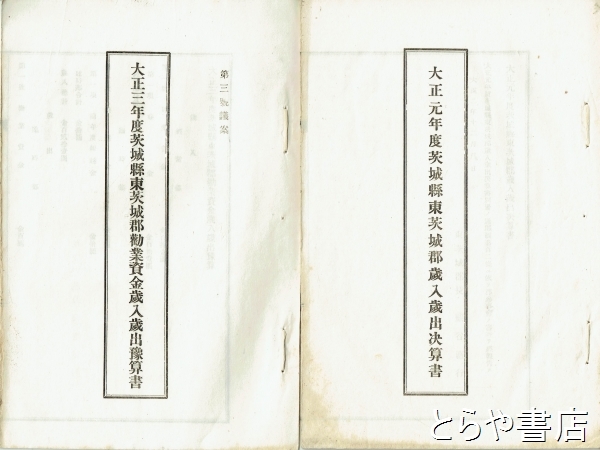 大正元年度茨城縣東茨城郡歲入歲出決算書
第三號議案
大正三年度茨城縣東茨城郡勸業資金歲入歲出豫算書
とらや書店